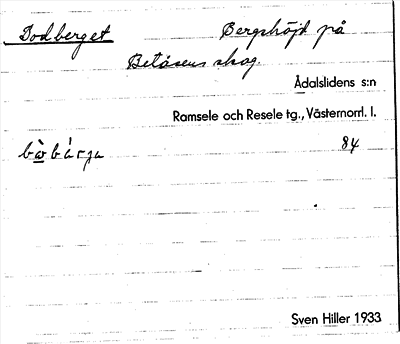 Dodberget Bergshöjd på
Betåsens skog.
Ådalslidens s:n
Ramsele och Resele tg., Västernorrl. l.
84
Sven Hiller 1933